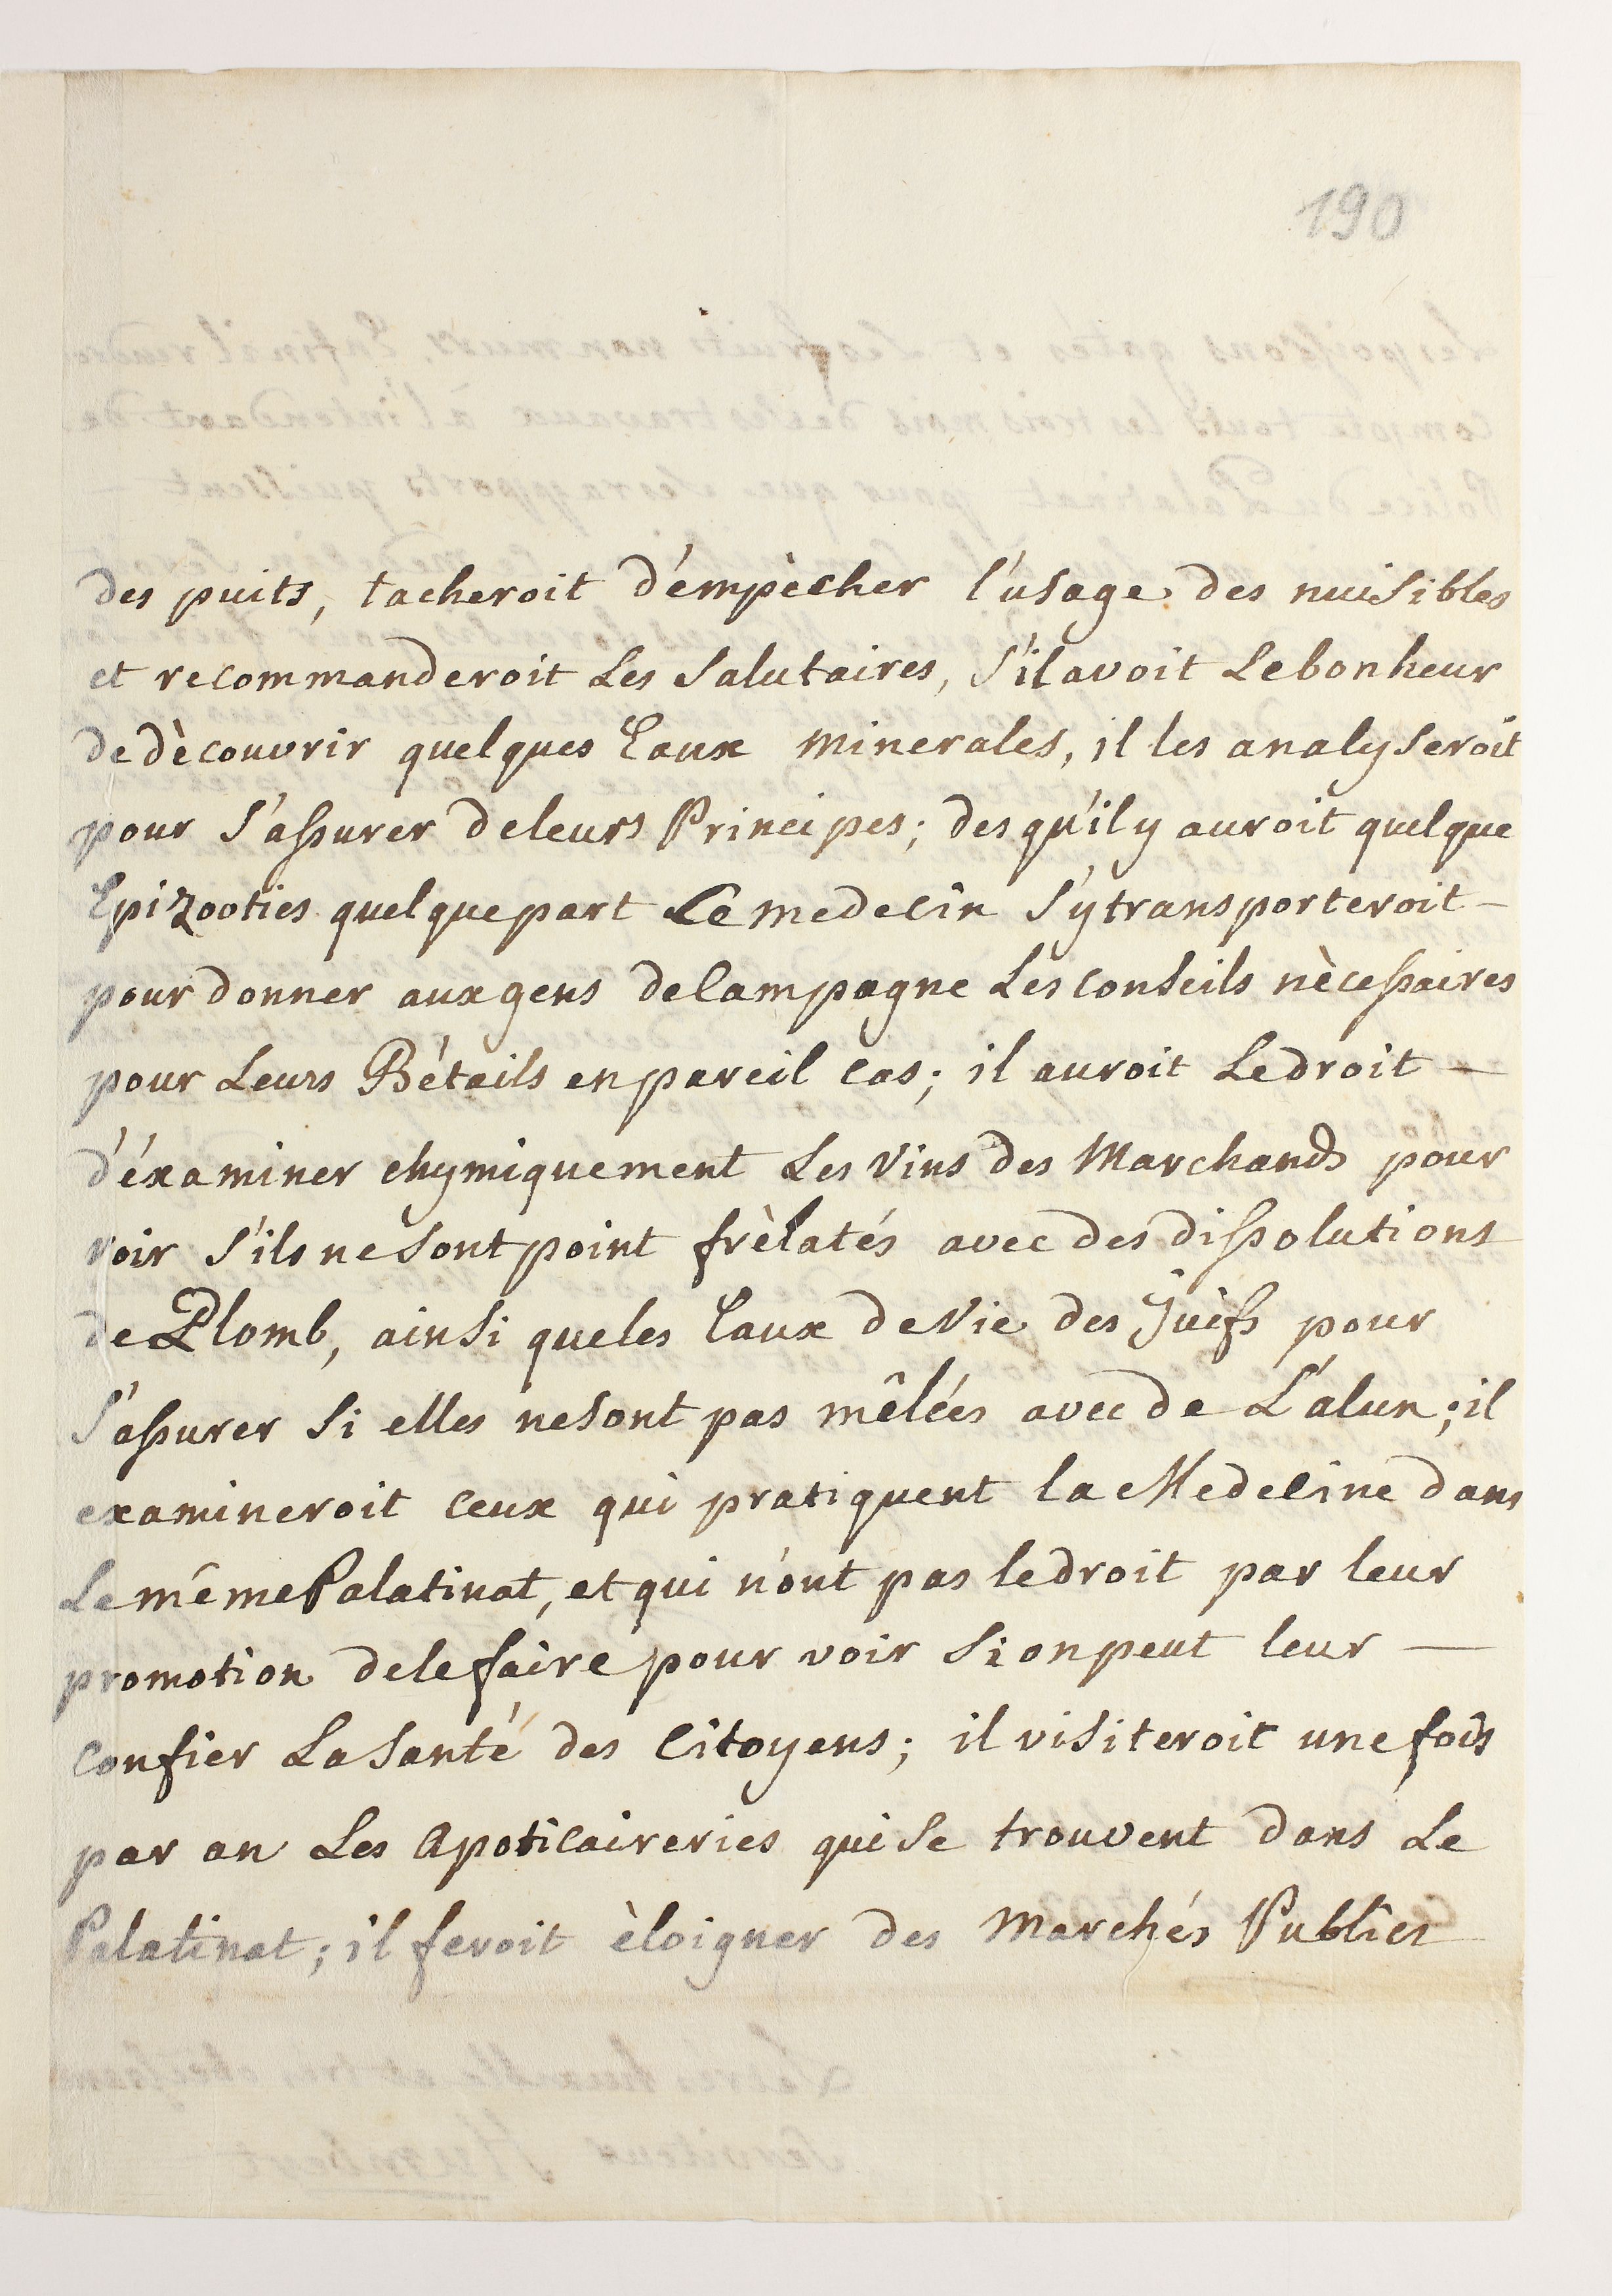 190
des puits, tacheroit d'empècher l'usage des nuisibles
et recommanderoit Les Salutaires, S'il avoit Le bonheur
de dècouvrir quelques Eaux minerales, il les analyseroit
pour S'assurer de leurs Principes; des qu'il y auroit quelque
Epizooties quelque part Le medecin S'y transporteroit —
pour donner aux gens de Campagne Les Conseils nècessaires
pour Leurs Bétails en pareil cas; il auroit Le droit —
d'éxaminer chymiquement Les Vins des Marchands pour
voir S'ils ne Sont point frèlatés avec des dissolutions
de Plomb, ainsi que les Eaux de Vie des Juifs pour
S'assurer Si elles ne Sont pas mêlées avec de L'alun; il
examineroit Ceux qui pratiquent la Medecine dans
Le même Palatinat, et qui n'ont pas le droit par leur
promotion de le faire pour voir Si on peut leur —
Confier La Santé des Citoyens; il visiteroit une fois
par an Les Apoticaireries qui Se trouvent dans Le
Palatinat; il feroit èloigner des Marchés Publics